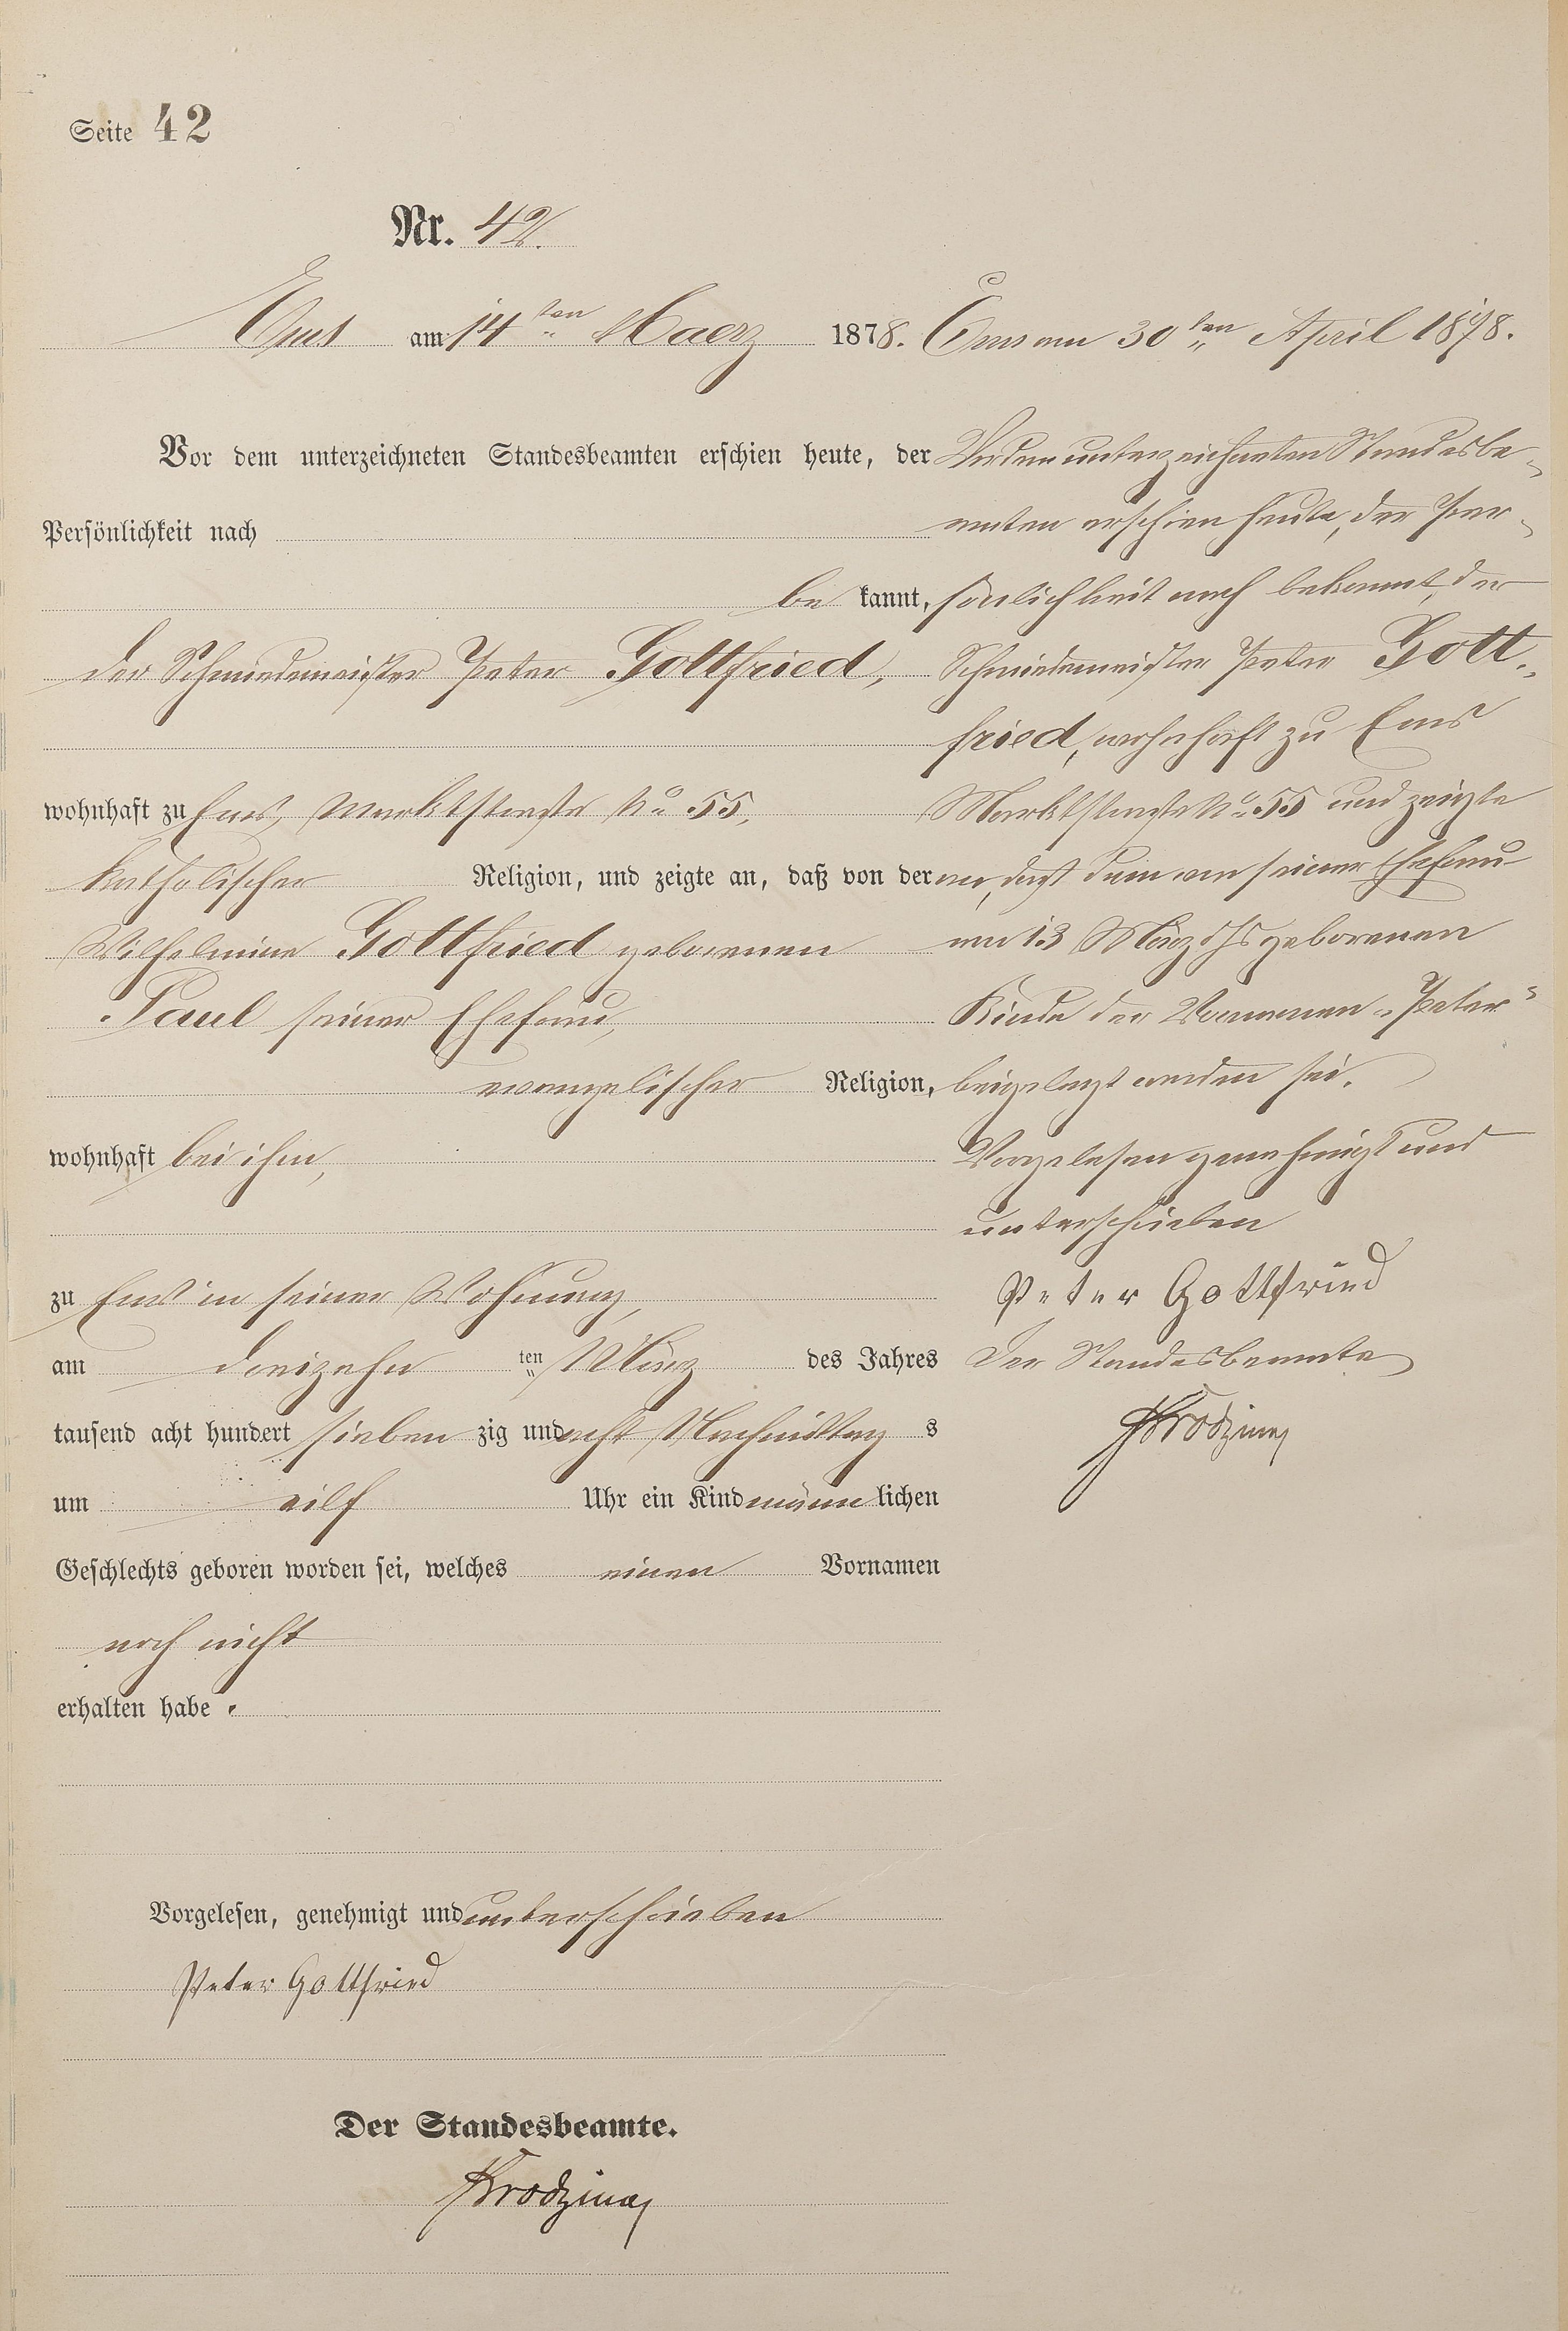 Seite 42
Nr. 42.
Ems am 14ten Maerz 1878.
Vor dem unterzeichneten Standesbeamten erschien heute, der
Persönlichkeit nach
be kannt,
der Schmiedemeister Peter Gottfried,
wohnhaft zu Ems, Marktstraße No 55,
katholischer Religion, und zeigte an, daß von der
Wilhelmine Gottfried geborenen
Paul seiner Ehefrau,
evangelischer Religion,
wohnhaft bei ihm,
zu Ems in seiner Wohnung,
am dreizehn ten März des Jahres
tausend acht hundert sieben zig und acht Nachmittag s
um eilf Uhr ein Kind männ lichen
Geschlechts geboren worden sei, welches einen Vornamen
noch nicht
erhalten habe.
Vorgelesen, genehmigt und unterschrieben
Peter Gottfried
Der Standesbeamte.
Ems am 30ten April 1878.
Vor dem unterzeichneten Standesbe-
amten erschien heute, der Per-
sönlichkeit nach bekannt, der
Schmiedemeister Peter Gott-
fried, wohnhaft zu Ems
Marktstraße No 55 und zeigte
an, daß dem von seiner Ehefrau
am 13 März geborenen
Kinde der Vornamen "Peter"
beigelegt worden sei.
Vorgelesen genehmigt und
unterschrieben
Peter Gottfried
Der Standesbeamte